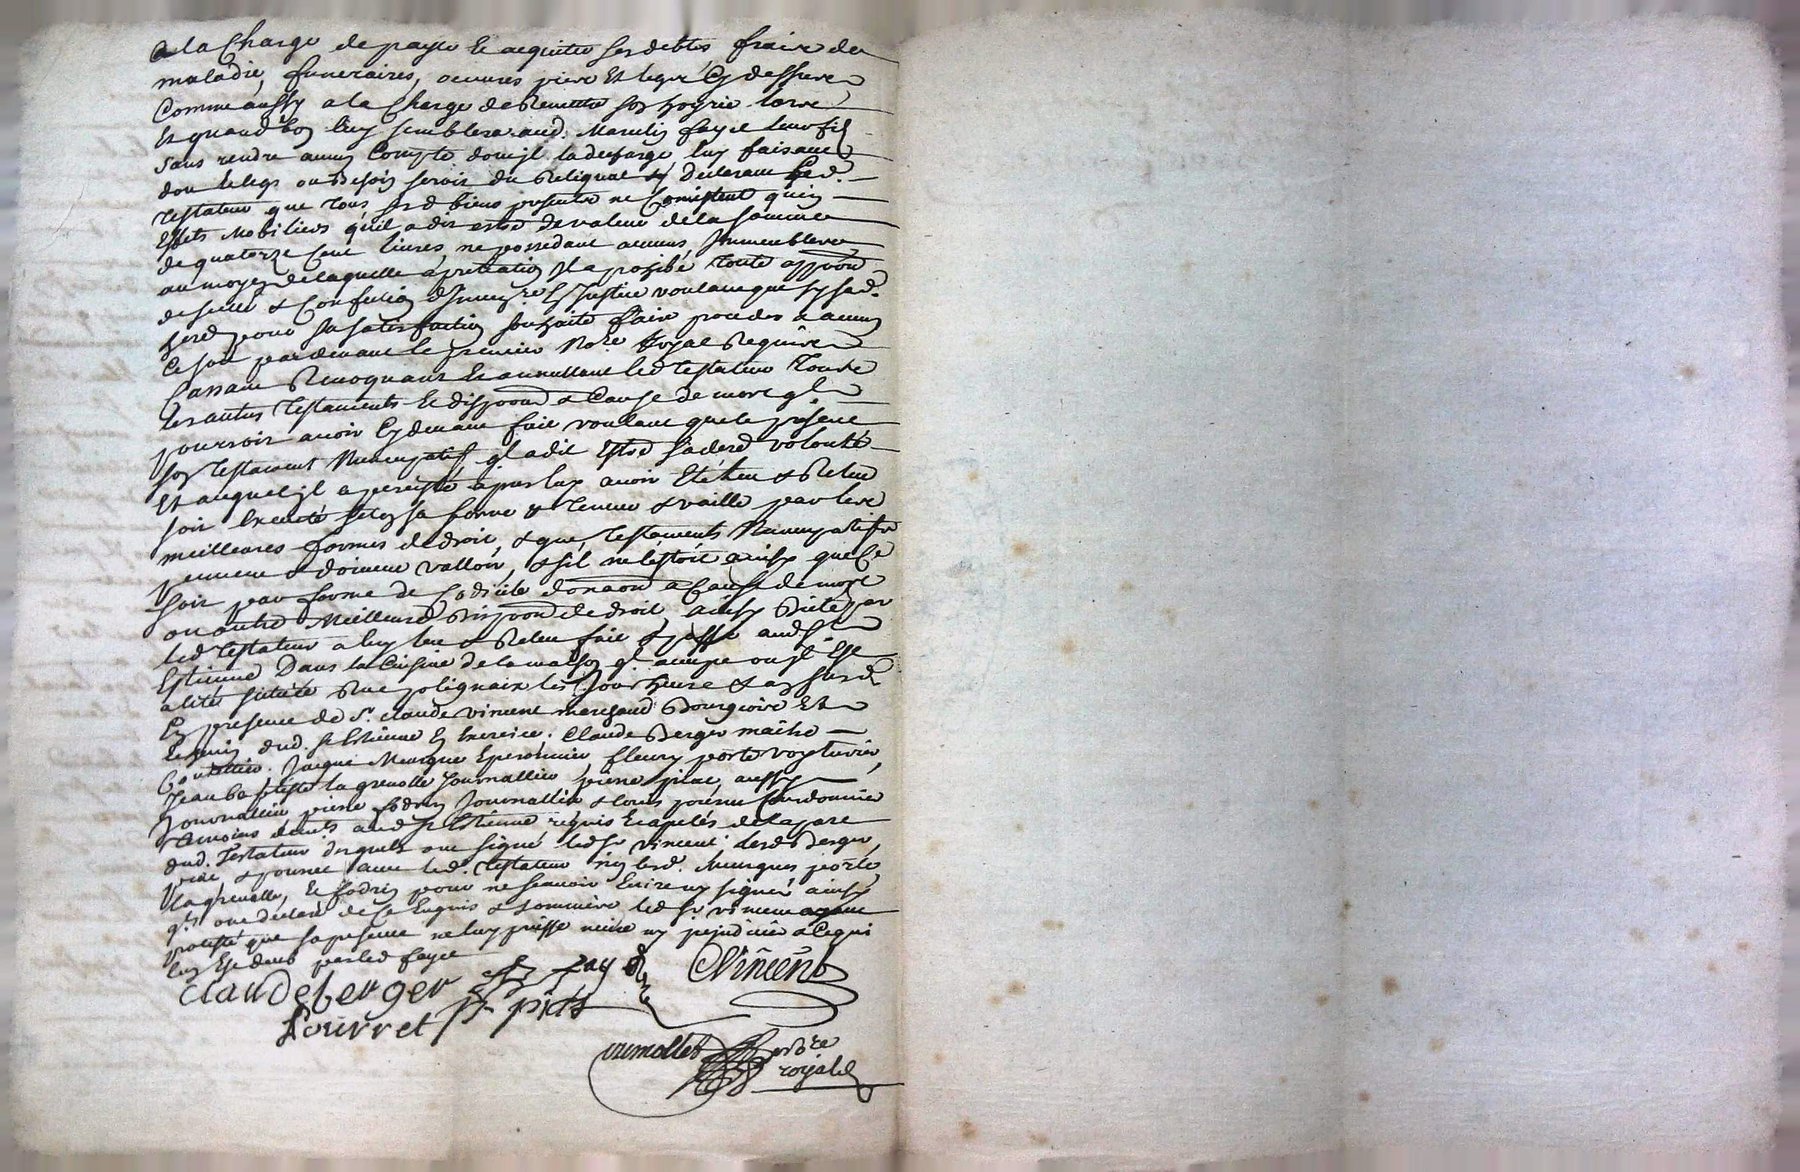 a la Charge de payer et acquitter ses debtes fraix de
maladie, funeraires, oeuvres pies et legat cy dessus
Comme aussy a la Charge de Remettre son hoyrie lors
et quand bon luy semblera aud. faye leur fils
sans rendre aucun Compte dont il la decharge luy faisant
don et legs au Besoin du Reliquat declarant led.
testateur que tous sesd biens presents ne Consistent qu'en
Effets Mobiliers qu'il a dit estre de valeur de la somme
de quatorze Cent livres, ne possedant aucuns Immeubles
au moyen de laquelle apretiation Il a prohibé toute appoon
de scellé & Confection d'Inventre En Justice voulant que sy sad.
herd pour sa satisfaction souhaite faire proceder a aucun
Ce soit pardevant le premier Nore Royal Requis
Cassant Revoquant et annullant led testateur Toutes
les autres testaments et dispoons a Cause de mort ql
pourroit avoir Cy devant fait voulant que le present
son testament Nuncupatif ql a dit Estre sa derd volonté
Et auquel il a persisté après luy avoir Eté leu & Releu
soit Executé selon sa forme & teneur & vaille par les
meilleures formes de droit, & que testaments Nuncupatifs
peuvent & doivent valloir, & s'il ne lestoit ainsy que Ce
soit par forme de Codicile donaon a Cause de mort
ou autre Meilleure Dispoon de droit, ainsy Dicté par
led testateur a luy leu & Releu fait & passé aud St
Estienne Dans la Cuisine de la maison ql occupe ou il Est
alité scituée Rue polignaix les Jour heure & an susd
En presence de Sr. Claude Vincent marchand Bourgeois Et
aud. St Estienne En Exercice. Claude Berger maître
Coutellier. Jacque Murgue Eperonnier, fleury porte voyturier,
Jean baptiste la grenolle Journallier pierre pitat, aussy
Journallier pierre Journallier & Louis pourret Cordonnier
temoins aud St Estienne requis et apelés de la part
dud. Testateur desquels ont signé led Sr Vincent lesd Berger,
pitat & pourret avec led. Testateur non lesd. Murgues porte
la grenolle, et pour ne scavoir Ecrire ny signer ainsy
qls ont declaré de Ce Enquis & sommés led Sr Vincent ayant
protesté que sa presence ne luy puisse nuire ny prejudicier a Ce qui
luy Est deub par led faye
Claude berger fay Vincent
Pourret pitat
royal